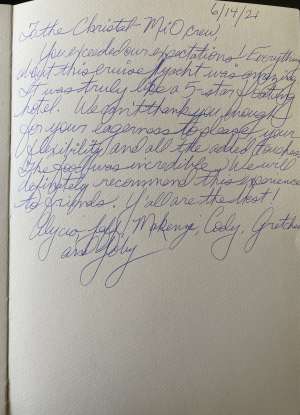 6/14/21
To the Christal-MiO crew,
You exceeded our expectations! Everything
about this cruise/yacht was amazing.
It was truly like a 5-star floating
hotel. We can't thank you enough
for your eagerness to please, your
flexibility and all the added touches.
The food was incredible. We will
definitely recommend this experience
to friends. Y'all are the best!
Makenzi, Cody, Gretchen
and Joby